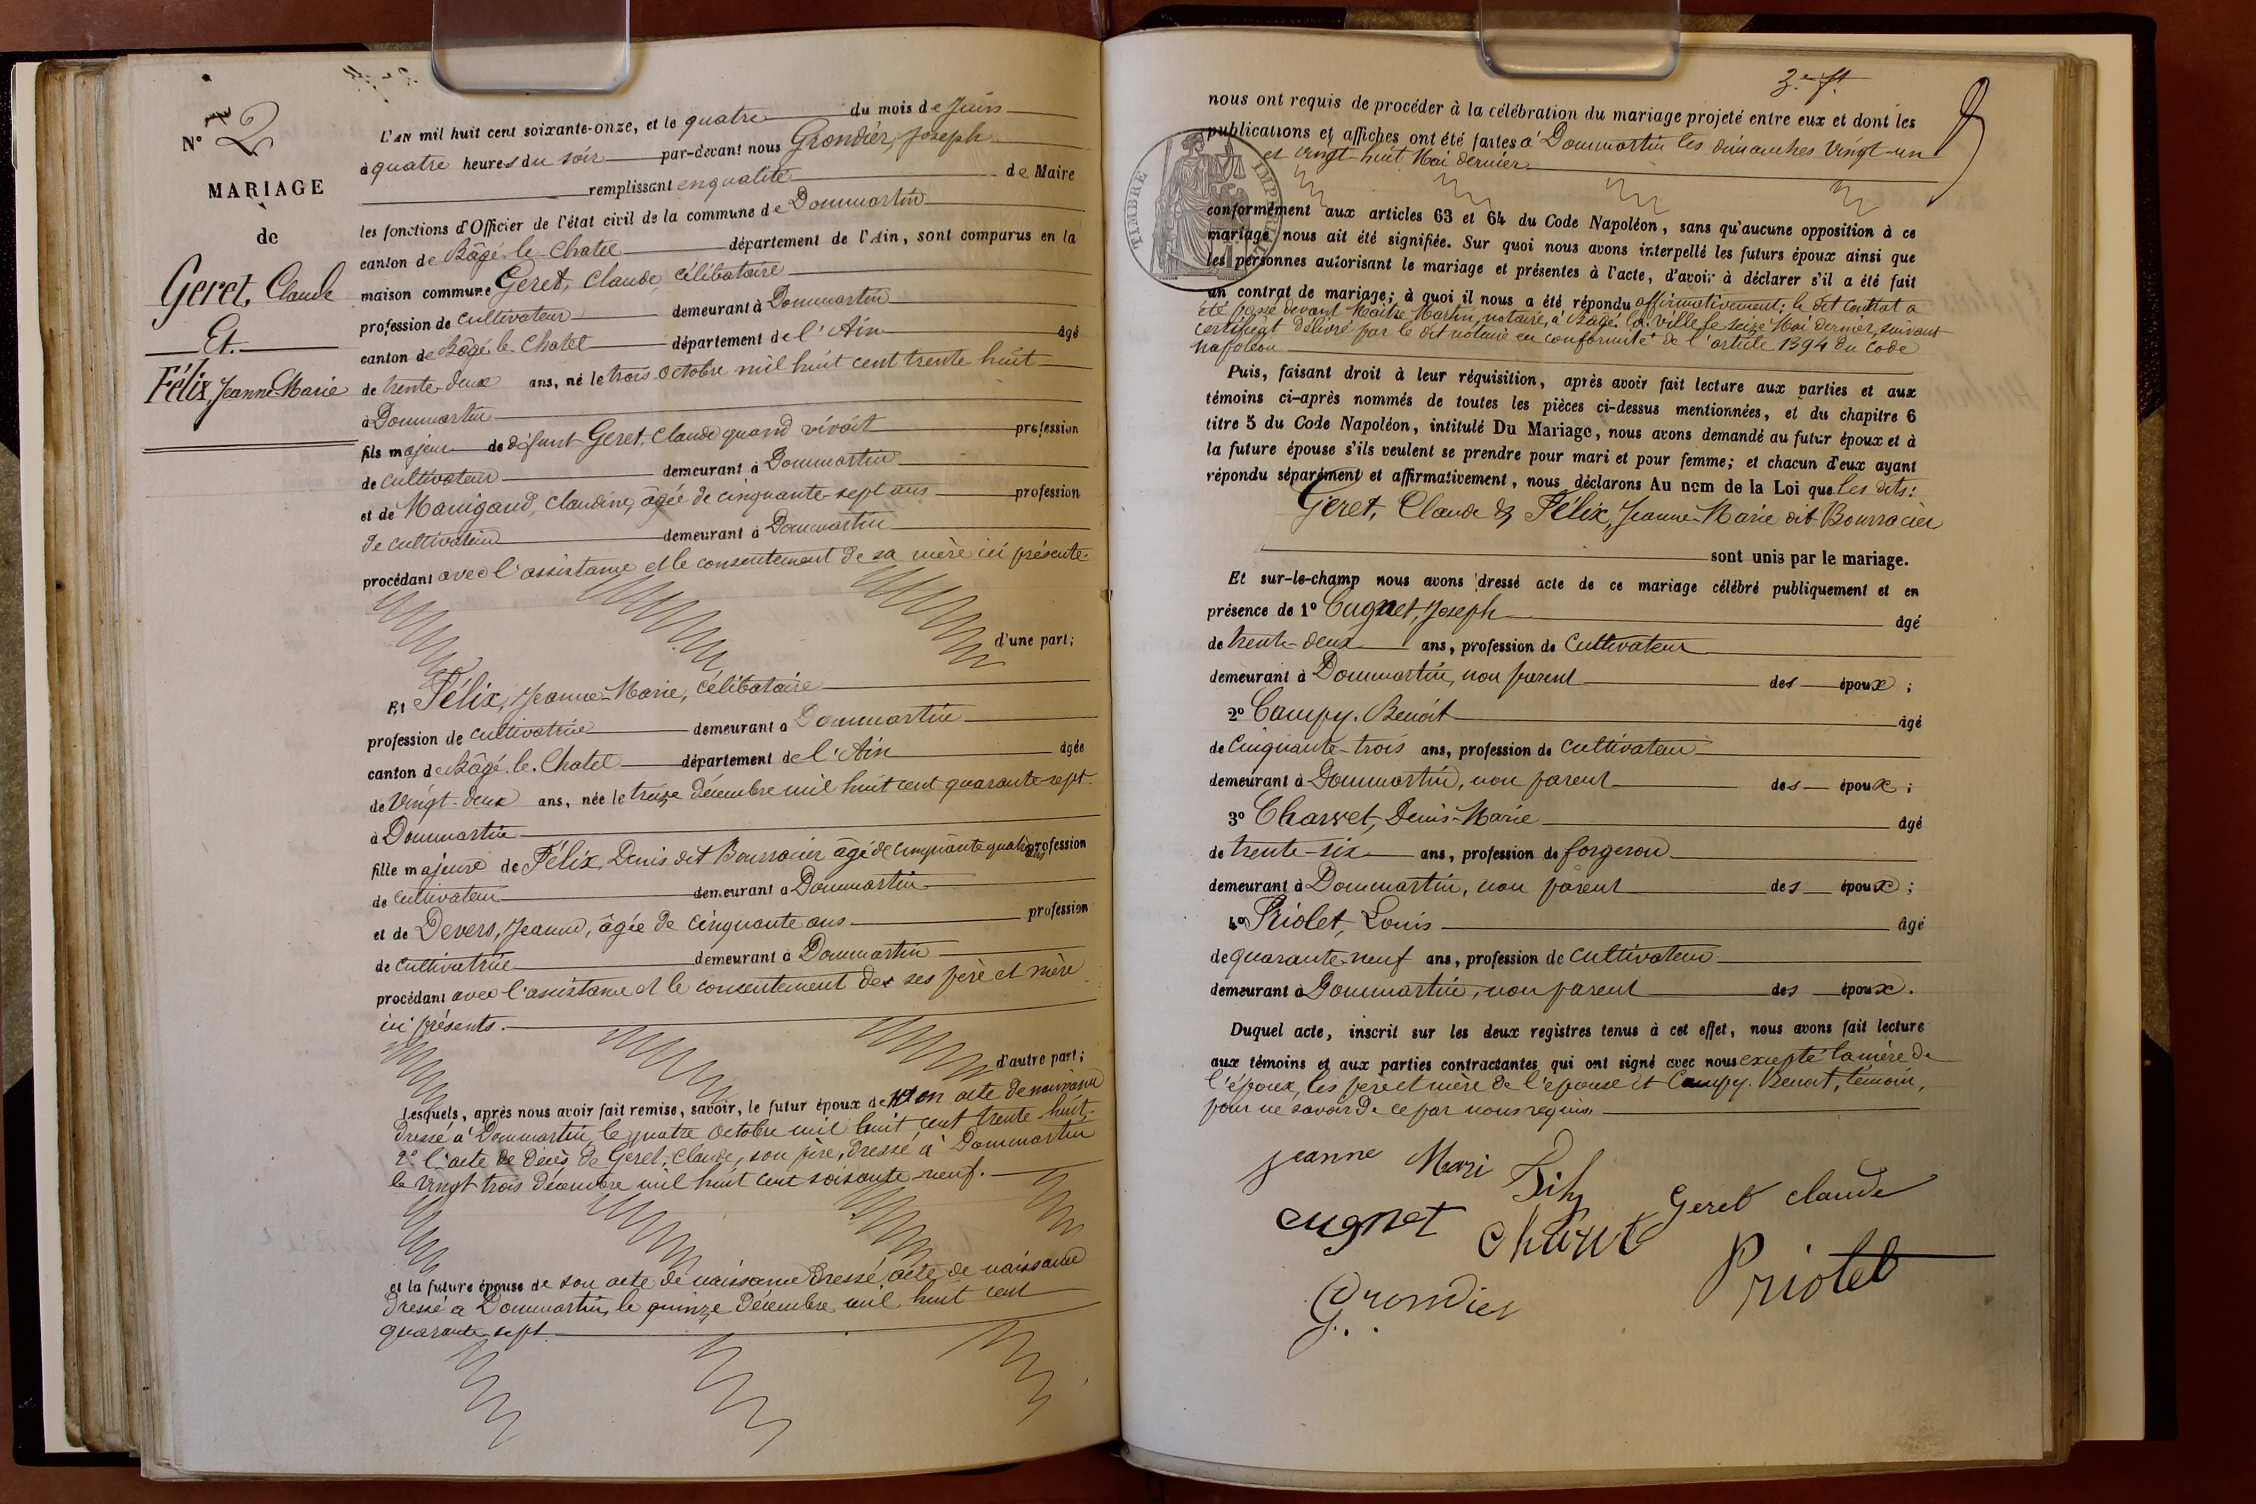 N° 2
MARIAGE
de
Geret, Claude
Et.
Félix, Jeanne-Marie
L'AN mil huit cent soixante-onze, et le quatre du mois de Juin
à quatre heures du soir par-devant nous Grondier, Joseph
remplissant en qualité de Maire
les fonctions d'Officier de l'état civil de la commune de Dommartin
canton de Bâgé-le-Chatel département de l'Ain, sont comparus en la
maison commune Geret, Claude, célibataire
profession de cultivateur demeurant à Dommartin
canton de Bâgé-le-Chatel département de l'Ain âgé
de trente-deux ans, né le trois octobre mil huit cent trente huit
à Dommartin
fils majeur de défunt Geret, Claude quand vivait profession
de cultivateur demeurant à Dommartin
et de Manigand, Claudine, âgée de cinquante-sept ans profession
de cultivatrice demeurant à Dommartin
procédant avec l'assistance et le consentement de sa mère ici présente
d'une part;
Et Félix, Jeanne-Marie, célibataire
profession de cultivatrice demeurant à Dommartin
canton de Bâgé-le-Chatel département de l'Ain âgée
de vingt-deux ans, née le treize décembre mil huit cent quarante-sept
à Dommartin
fille majeure de Félix, Denis dit Bourracier âgé de cinquante quatre ans profession
de cultivateur demeurant à Dommartin
et de Devers, Jeanne, âgée de cinquante ans profession
de cultivatrice demeurant à Dommartin
procédant avec l'assistance et le consentement de ses père et mère
ici présents.
d'autre part;
Lesquels, après nous avoir fait remise, savoir, le futur époux de son acte de naissance
dressé à Dommartin le quatre octobre mil huit cent trente-huit,
2° l'acte de décès de Geret, Claude, son père, dressé à Dommartin
le vingt trois décembre mil huit cent soixante-neuf.
et la future épouse de son acte de naissance dressé, acte de naissance
dressé à Dommartin, le quinze décembre mil huit cent
quarante sept
3e ft.
nous ont requis de procéder à la célébration du mariage projeté entre eux et dont les
publications et affiches ont été faites à Dommartin les dimanches vingt-un
et vingt-huit Mai dernier
TIMBRE IMPÉRIAL
conformément aux articles 63 et 64 du Code Napoléon, sans qu'aucune opposition à ce
mariage nous ait été signifiée. Sur quoi nous avons interpellé les futurs époux ainsi que
les personnes autorisant le mariage et présentes à l'acte, d'avoir à déclarer s'il a été fait
un contrat de mariage; à quoi il nous a été répondu affirmativement; le dit contrat a
été passé devant Maître Martin, notaire, à Bâgé-la-Ville le seize Mai dernier, suivant
certificat délivré par le dit notaire en conformité de l'article 1394 du Code
Napoléon
Puis, faisant droit à leur réquisition, après avoir fait lecture aux parties et aux
témoins ci-après nommés de toutes les pièces ci-dessus mentionnées, et du chapitre 6
titre 5 du Code Napoléon, intitulé Du Mariage, nous avons demandé au futur époux et à
la future épouse s'ils veulent se prendre pour mari et pour femme; et chacun d'eux ayant
répondu séparément et affirmativement, nous déclarons Au nom de la Loi que Les dits:
Geret, Claude & Félix, Jeanne-Marie dit Bourracier
sont unis par le mariage.
Et sur-le-champ nous avons dressé acte de ce mariage célébré publiquement et en
présence de 1° Cugnet, Joseph âgé
de trente-deux ans, profession de cultivateur
demeurant à Dommartin, non parent des époux;
2° Campy, Benoit âgé
de Cinquante-trois ans, profession de cultivateur
demeurant à Dommartin, non parent des époux;
3° Charvet, Denis-Marie âgé
de trente-six ans, profession de forgeron
demeurant à Dommartin, non parent des époux;
4° Priolet, Louis âgé
de quarante-neuf ans, profession de cultivateur
demeurant à Dommartin, non parent des époux.
Duquel acte, inscrit sur les deux registres tenus à cet effet, nous avons fait lecture
aux témoins et aux parties contractantes qui ont signé avec nous excepté la mère de
l'époux, les père et mère de l'épouse et Campy, Benoit, témoin,
pour ne savoir de ce par nous requis.
Jeanne Mari
Geret claude
cugnet
Priolet
Grondier